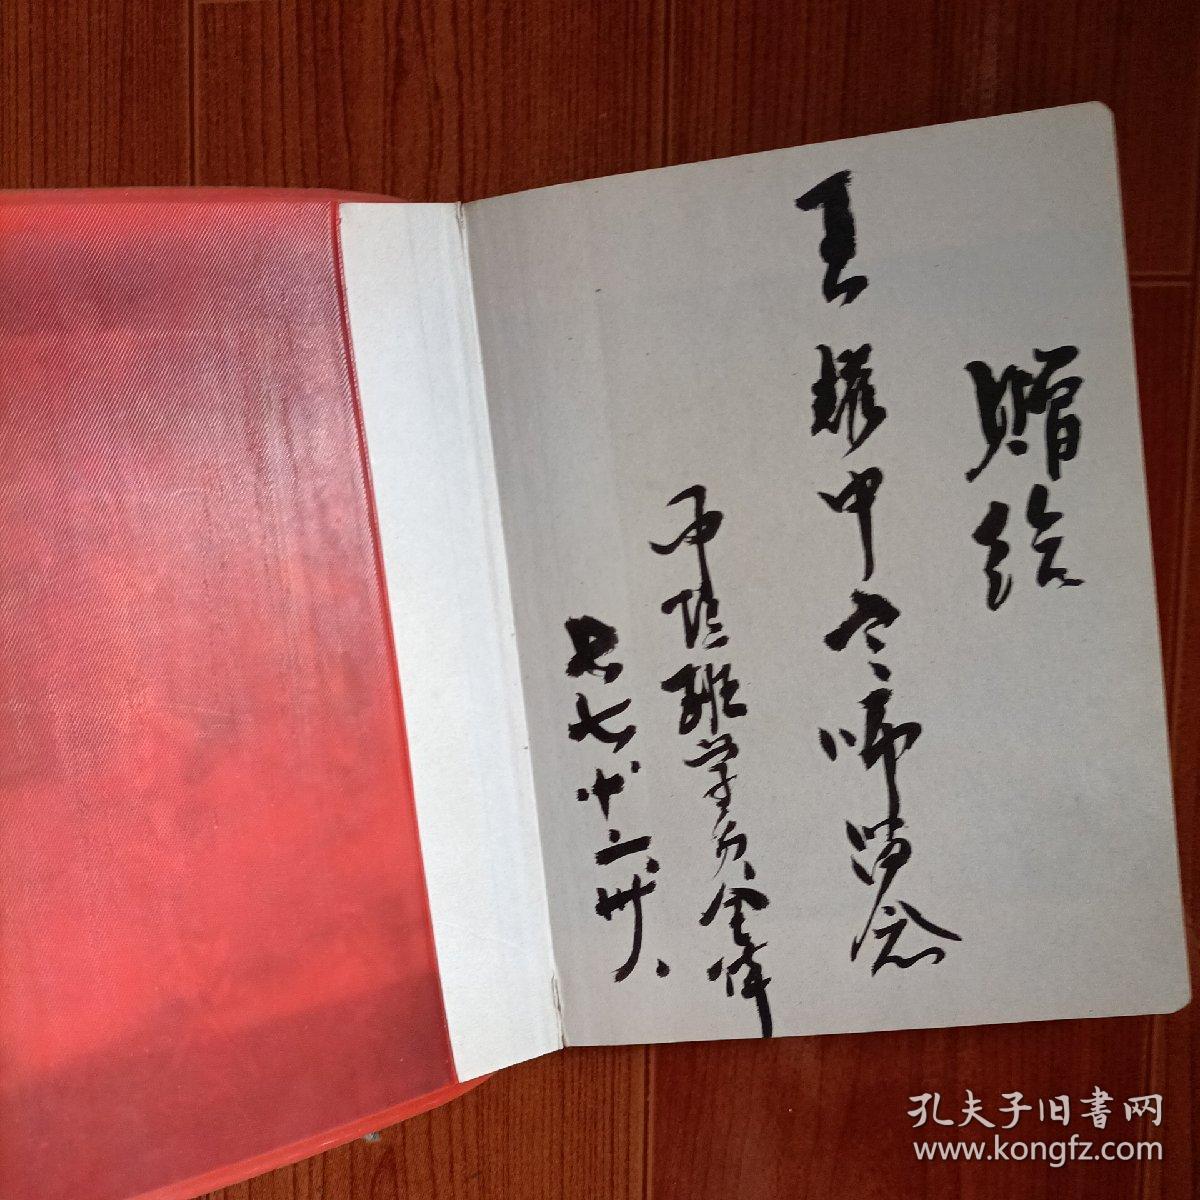 赠给
王耀中老师留念
中医班学员全体
七七、十二、卅、
孔夫子旧書网
www.kongfz.com